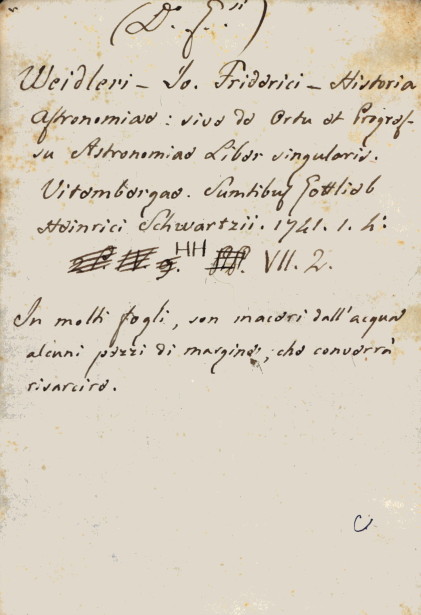 (D. F.)
Weidleri – Jo. Friderici – Historia
Astronomiae: sive de Ortu et Progres-
su Astronomiae Liber singularis.
Vitembergae. Sumtibus Gottlieb
Heinrici Schwartzii. 1741. 1. 4:
HH VII. 2.
In molti fogli, son maceri dall'acqua
alcuni pezzi di margine, che converrà
risarcire.